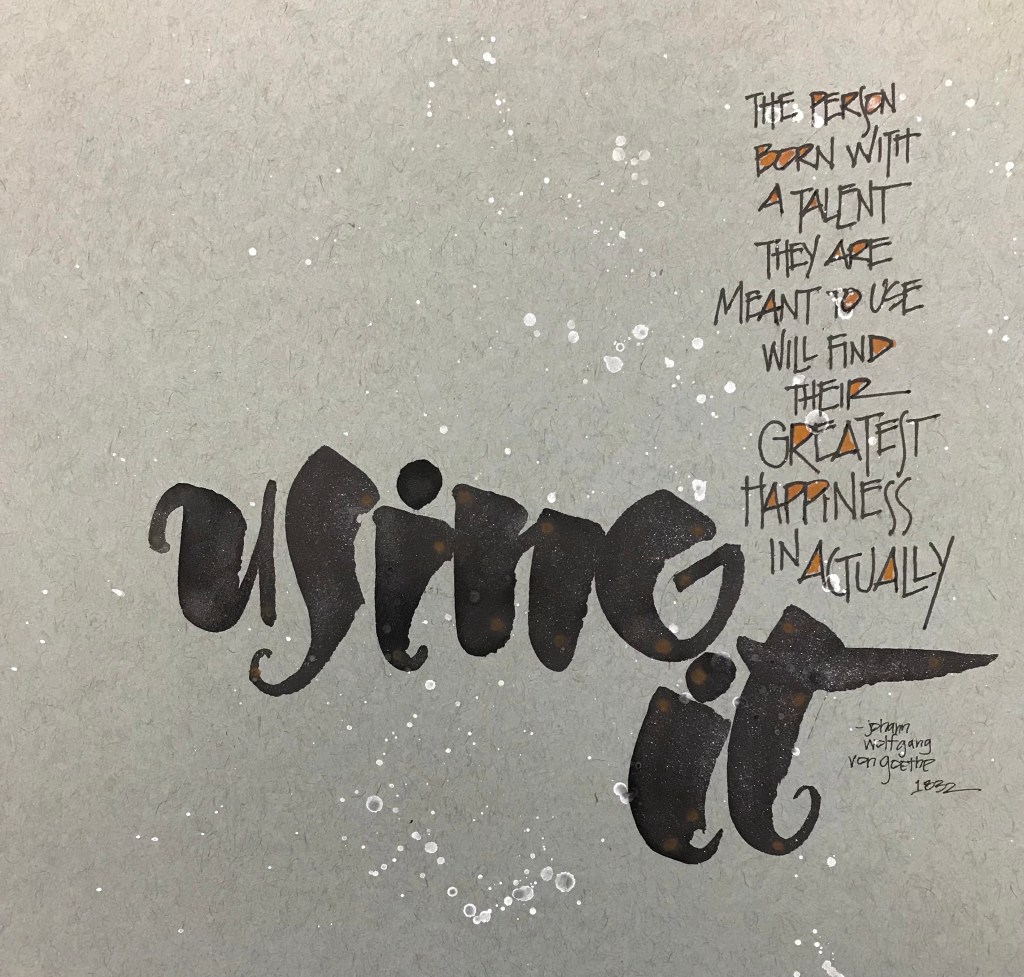 THE PERSON
BORN WITH
A TALENT
THEY ARE
MEANT TO USE
WILL FIND
THEIR
GREATEST
HAPPINESS
IN ACTUALLY
using
it
- johann
wolfgang
von goethe
1832